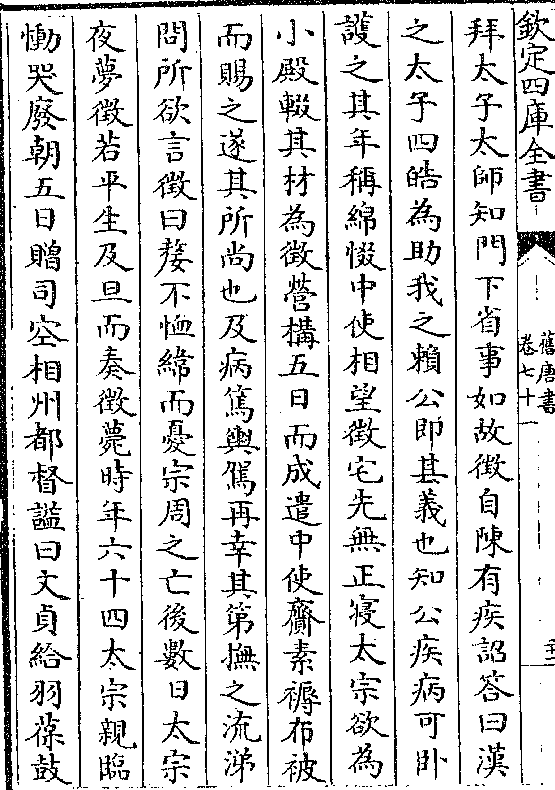 欽定四庫全書
舊唐書
卷七十一
拜太子太師知門下省事如故徴自陳有疾詔答曰漢
之太子四皓為助我之賴公即其義也知公疾病可卧
護之其年稱綿惙中使相望徴宅先無正寢太宗欲為
小殿輟其材為徴營構五日而成遣中使齎素褥布被
而賜之遂其所尚也及病篤輿駕再幸其第撫之流涕
問所欲言徴曰嫠不恤緯而憂宗周之亡後數日太宗
夜夢徴若平生及旦而奏徴薨時年六十四太宗親臨
慟哭廢朝五日贈司空相州都督諡曰文貞給羽葆鼓